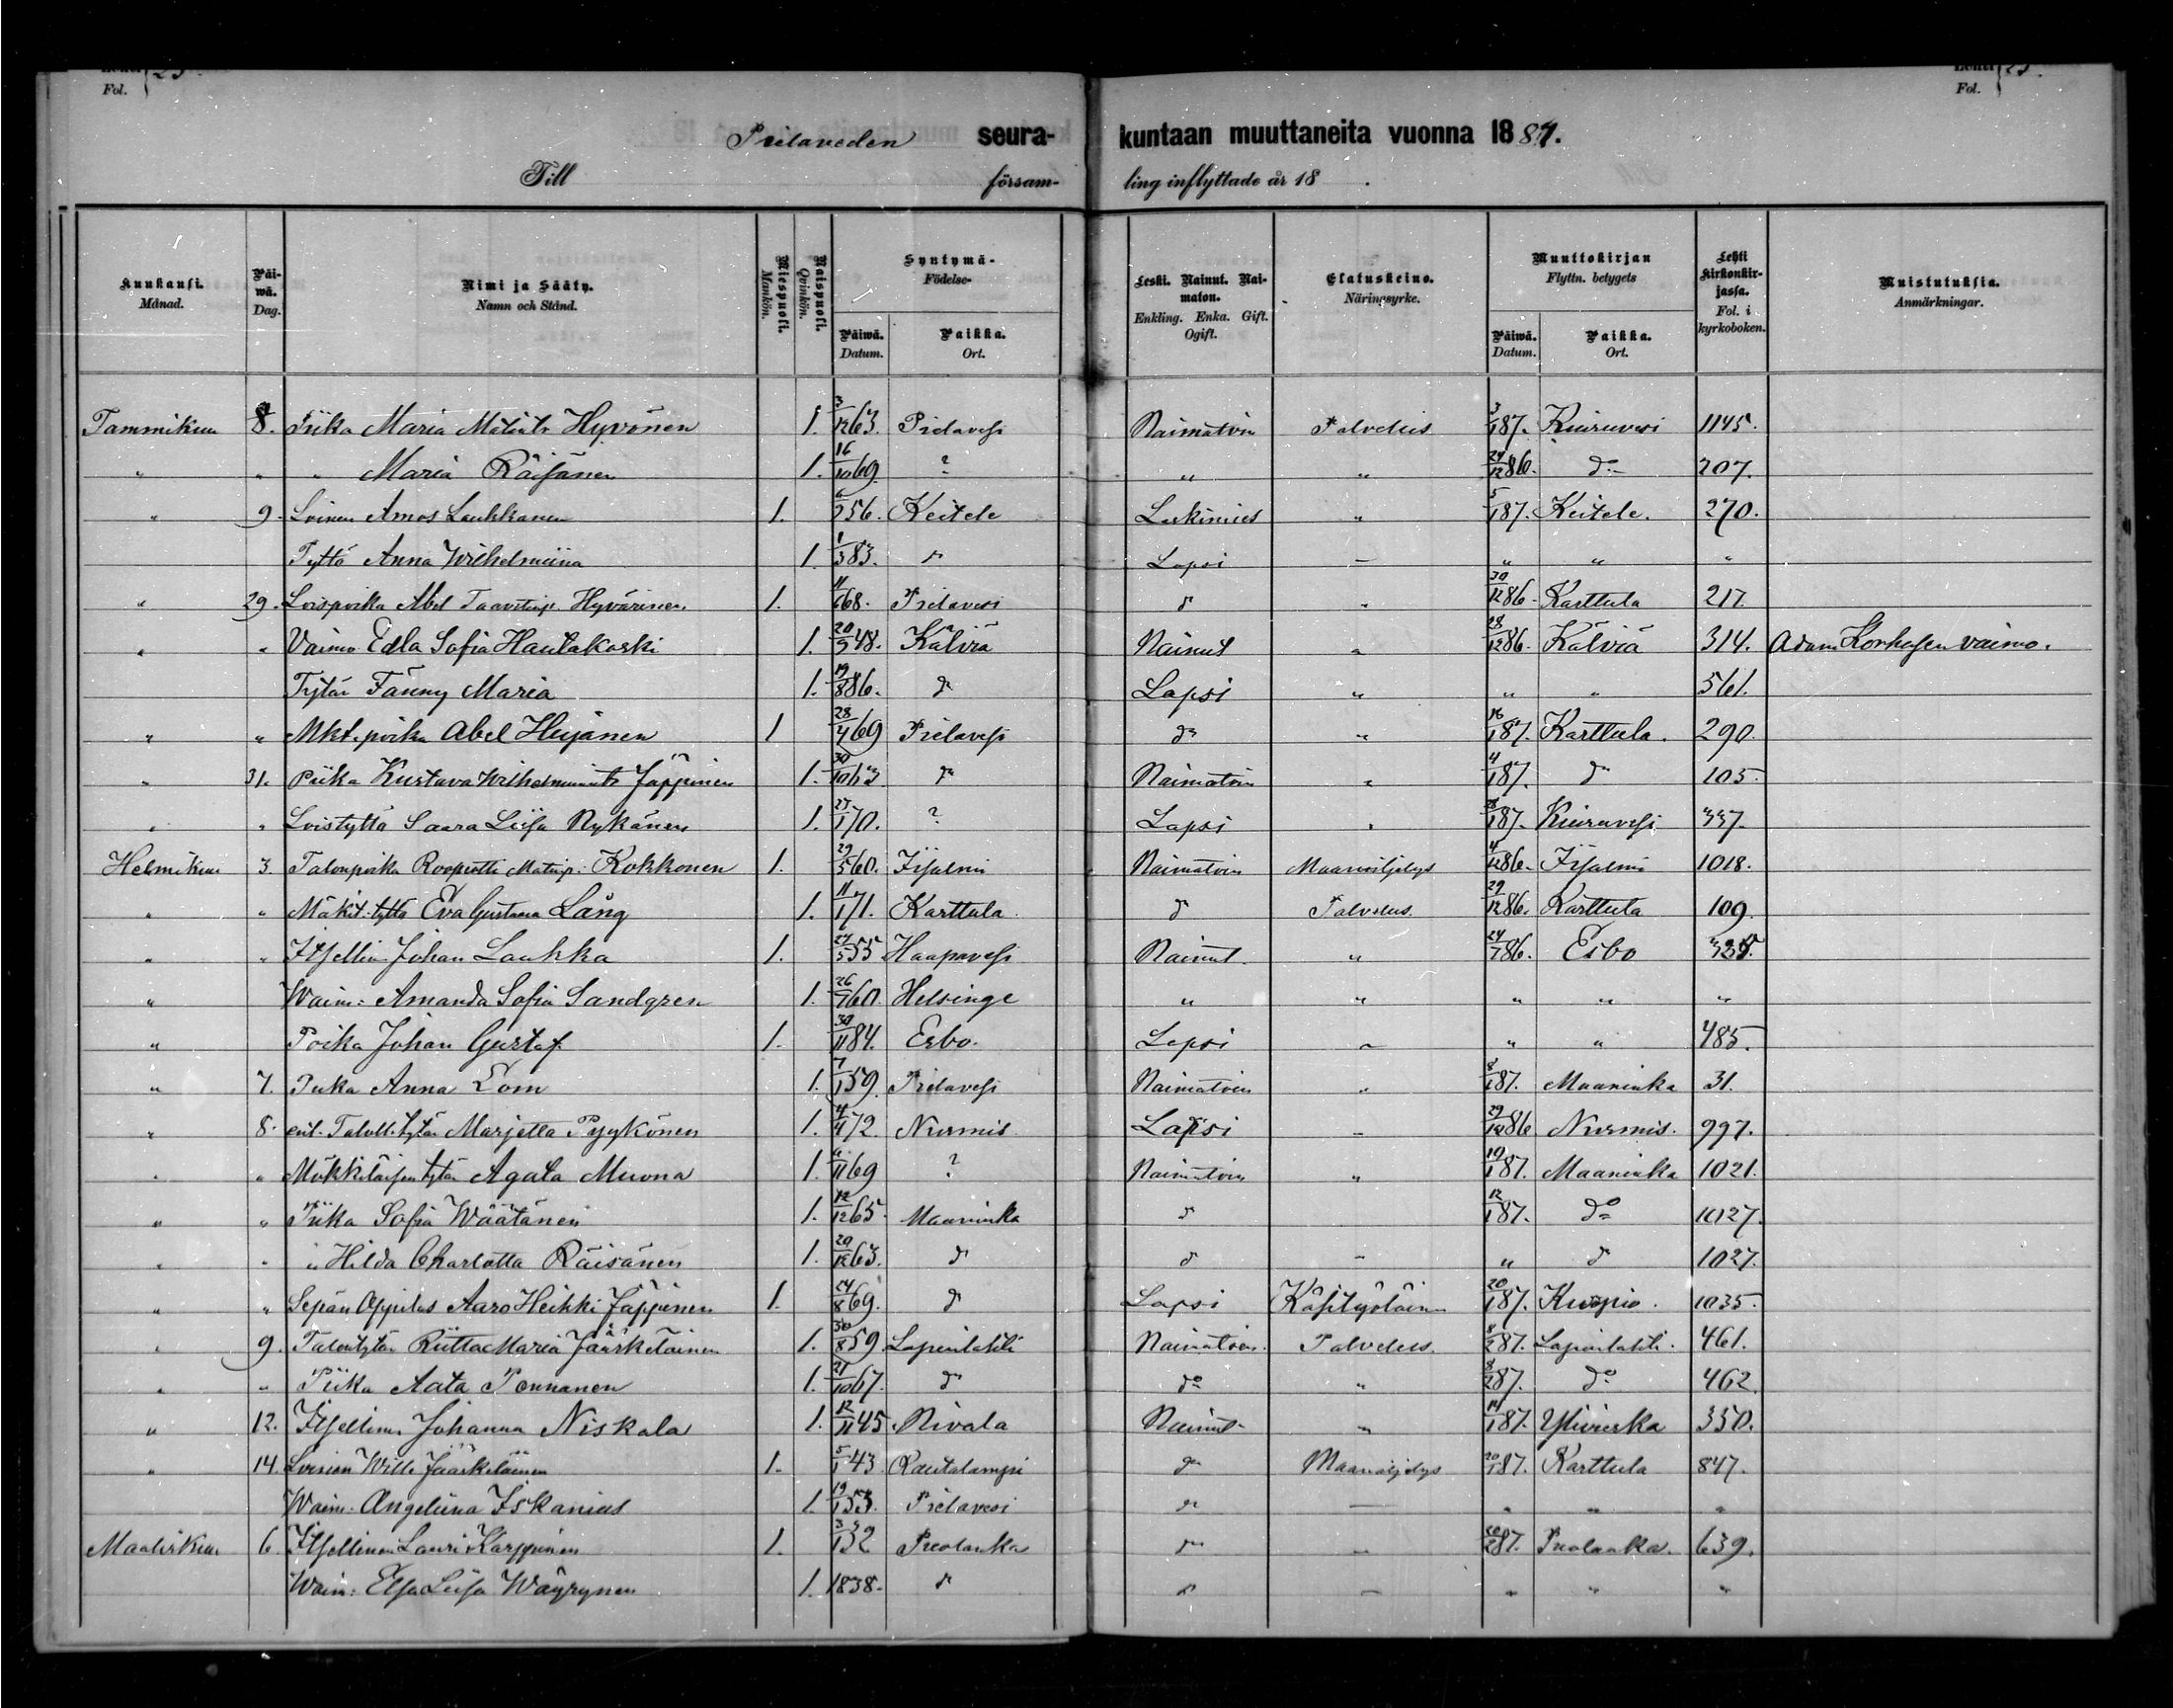 Fol. 25.
Fol. 25.
Pielaveden seura- kuntaan muuttaneita vuonna 1887.
Till församling inflyttade år 18 .
Kuukausi. Månad. Päiwä. Dag. Nimi ja Sääty. Namn och Stånd. Miespuoli. Mankön. Naispuoli. Qvinkön. Syntymä- Födelse- Päiwä. Datum. Paikka. Ort. Leski. Nainut. Naimaton. Enkling. Enka. Gift. Ogift. Elatuskeino. Näringsyrke. Muuttokirjan Flyttn. betygets Päiwä. Datum. Paikka. Ort. Lehti kirkonkirjassa. Fol. i kyrkoboken. Muistutuksia. Anmärkningar.
Tammikuu 8. Piika Maria Matintr Hyvönen 1. 3/12 63. Pielavesi Naimatoin Palvelus 3/1 87. Kiuruvesi 1145.
" " " Maria Räisänen 1. 16/10 69. ? " " 24/12 86. do 207.
" 9. Loinen Amos Laukkanen 1. 6/2 56. Keitele Leskimies " 5/1 87. Keitele. 270.
Tyttö Anna Wilhelmiina 1. 1/3 83. do Lapsi — " " "
" 29. Loispoika Abel Taavetinp. Hyvärinen 1. 11/6 68. Pielavesi do " 30/12 86. Karttula 217.
" " Vaimo Edla Sofia Hautakoski 1. 20/9 48. Kälviä Nainut " 28/12 86. Kälviä 314. Adam Korhosen vaimo.
Tytär Fanny Maria 1. 19/8 86. do Lapsi " " " 561.
" " Mkt. poika Abel Huijanen 1 28/4 69 Pielavesi do " 16/1 87. Karttula. 290.
" 31. Piika Kustava Wilhelmiinatr Jäppinen 1. 30/10 63. do Naimatoin " 4/1 87. do 105.
" " Loistyttö Saara Liisa Nykänen 1. 27/1 70. ? Lapsi " 28/1 87. Kiuruvesi 337.
Helmikuu 3. Talonpoika Roopertti Matinp. Kokkonen 1. 29/5 60. Iisalmi Naimatoin Maanviljelys 4/12 86. Iisalmi 1018.
" " Mäkit. tyttö Eva Gustava Lång 1. 11/1 71. Karttula. do Palvelus. 29/12 86. Karttula 109.
" " Itsellinen Johan Laukka 1. 24/5 55 Haapavesi Nainut. " 24/7 86. Esbo 325.
" Waim: Amanda Sofia Sandgren 1. 26/7 60. Helsinge " " " " "
" Poika Johan Gustaf 1. 30/11 84. Esbo. Lapsi " " " 485.
" 7. Piika Anna Lom 1. 7/1 59. Pielavesi Naimatoin " 8/1 87. Maaninka 31.
" 8. ent. Taloll. tytär Marjetta Pyykönen 1. 4/4 72. Nurmis Lapsi " 29/12 86 Nurmis. 997.
" " Mökkiläisen tytär Agata Muona 1. 11 69 ? Naimatoin " 19/1 87. Maaninka 1021.
" " Piika Sofia Wäätänen 1. 12/12 65. Maaninka do 12/1 87. do 1027.
" " " Hilda Charlotta Räisänen 1. 20/12 63. do do " " do 1027.
" " Sepän oppilas Aaro Heikki Jäppinen 1. 24/8 69. do Lapsi Käsityöläin 20/1 87. Kuopio. 1035.
" 9. Talontytär Riitta Maria Jääskeläinen 1. 30/8 59 Lapinlahti Naimatoin. Palvelus. 8/2 87. Lapinlahti. 461.
" " Piika Aata Pennanen 1. 21/10 67. do do " 8/2 87. do 462
" 12. Itsellinen Johanna Niskala 1. 12/11 45 Nivala Nainut " 14/1 87. Ylivieska 350.
" 14. Loisien Wille Jääskeläinen 1. 5/1 43. Rautalampi do Maanviljelys 20/1 87. Karttula 847.
Waim: Angeliina Iskanius 1. 19/1 53. Pielavesi do — " " "
Maaliskuu 6. Itsellinen Lauri Karppinen 1. 3/1 32 Puolanka do " 20/2 87. Puolanka. 639.
Waim: Elsa Liisa Wäyrynen 1. 1838. do do — " " "